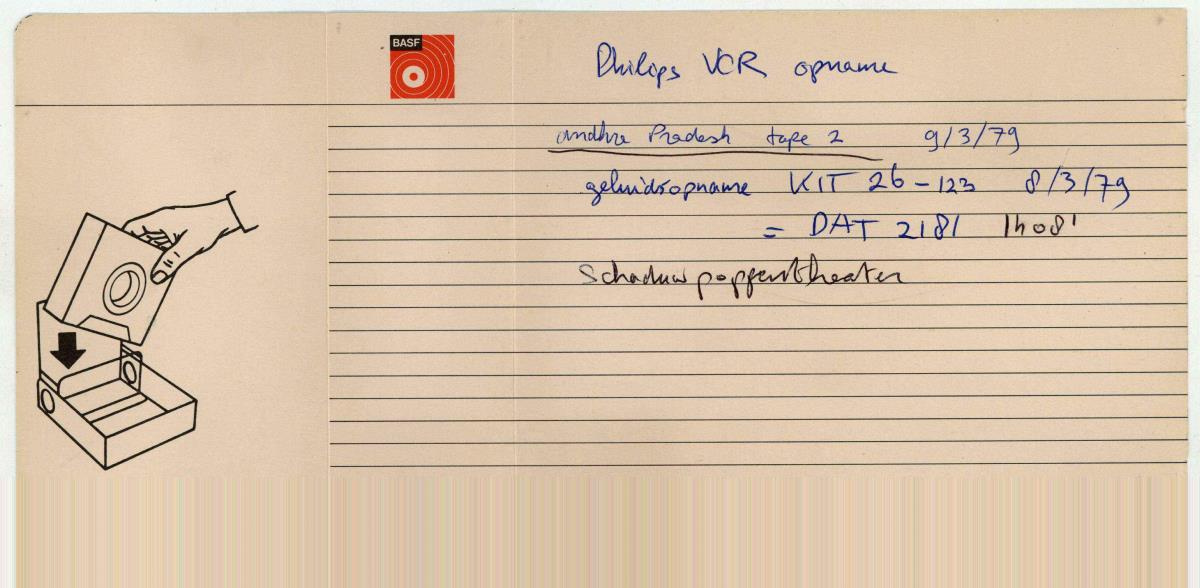 BASF
Philips VCR opname
andhra Pradesh tape 2 9/3/79
geluidsopname KIT 26-123 8/3/79
= DAT 2181 1h08'
Schaduwpoppentheater